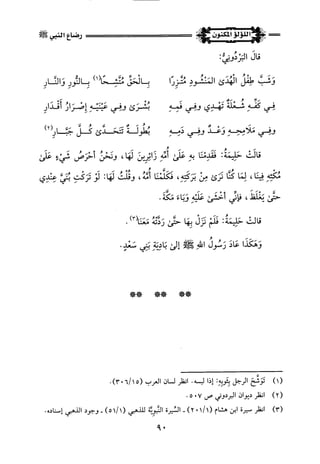 اللؤلؤ المكنون
رضاع النبي ﷺ
قَالَ البَرَدُّونِيُّ:
وَشَبَّ طِفْلُ الْهُدَى الْمَنْشُودِ مُتَّزِرًا بِالْحَقِّ مُتَّشِحًا(١) بِالنُّورِ وَالنَّارِ
فِي كَفِّهِ شُعْلَةٌ تَهْدِي وَفِي فَمِهِ بُشْرَى وَفِي عَيْنَيْهِ إِصْرَارُ أَقْدَارِ
وَفِي مَلَامِحِهِ وَعْدٌ وَفِي دَمِهِ بُطُولَةٌ تَتَحَدَّى كُلَّ جَبَّارِ(٢)
قَالَتْ حَلِيمَةُ: فَقَدِمْنَا بِهِ عَلَى أُمِّهِ زَائِرِينَ لَهَا، وَنَحْنُ أَحْرَصُ شَيْءٍ عَلَى
مُكْثِهِ فِينَا، لِمَا كُنَّا نَرَى مِنْ بَرَكَتِهِ، فَكَلَّمْنَا أُمَّهُ، وَقُلْتُ لَهَا: لَوْ تَرَكْتِ بُنَيَّ عِنْدِي
حَتَّى يَغْلُظَ، فَإِنِّي أَخْشَى عَلَيْهِ وَبَاءَ مَكَّةَ.
قَالَتْ حَلِيمَةُ: فَلَمْ نَزَلْ بِهَا حَتَّى رَدَّتْهُ مَعَنَا(٣).
وَهَكَذَا عَادَ رَسُولُ اللهِ ﷺ إِلَى بَادِيَةِ بَنِي سَعْدٍ.
** ** **
(١) تَوَشَّحَ الرجل بِثَوبِهِ: إذا لبسه. انظر لسان العرب (٣٠٦/١٥).
(٢) انظر ديوان البردوني ص ٥٠٧.
(٣) انظر سيرة ابن هشام (٢٠١/١) - السِّيرة النَّبويَّة للذهبي (٥١/١) - وجود الذهبي إسناده.
٩٠